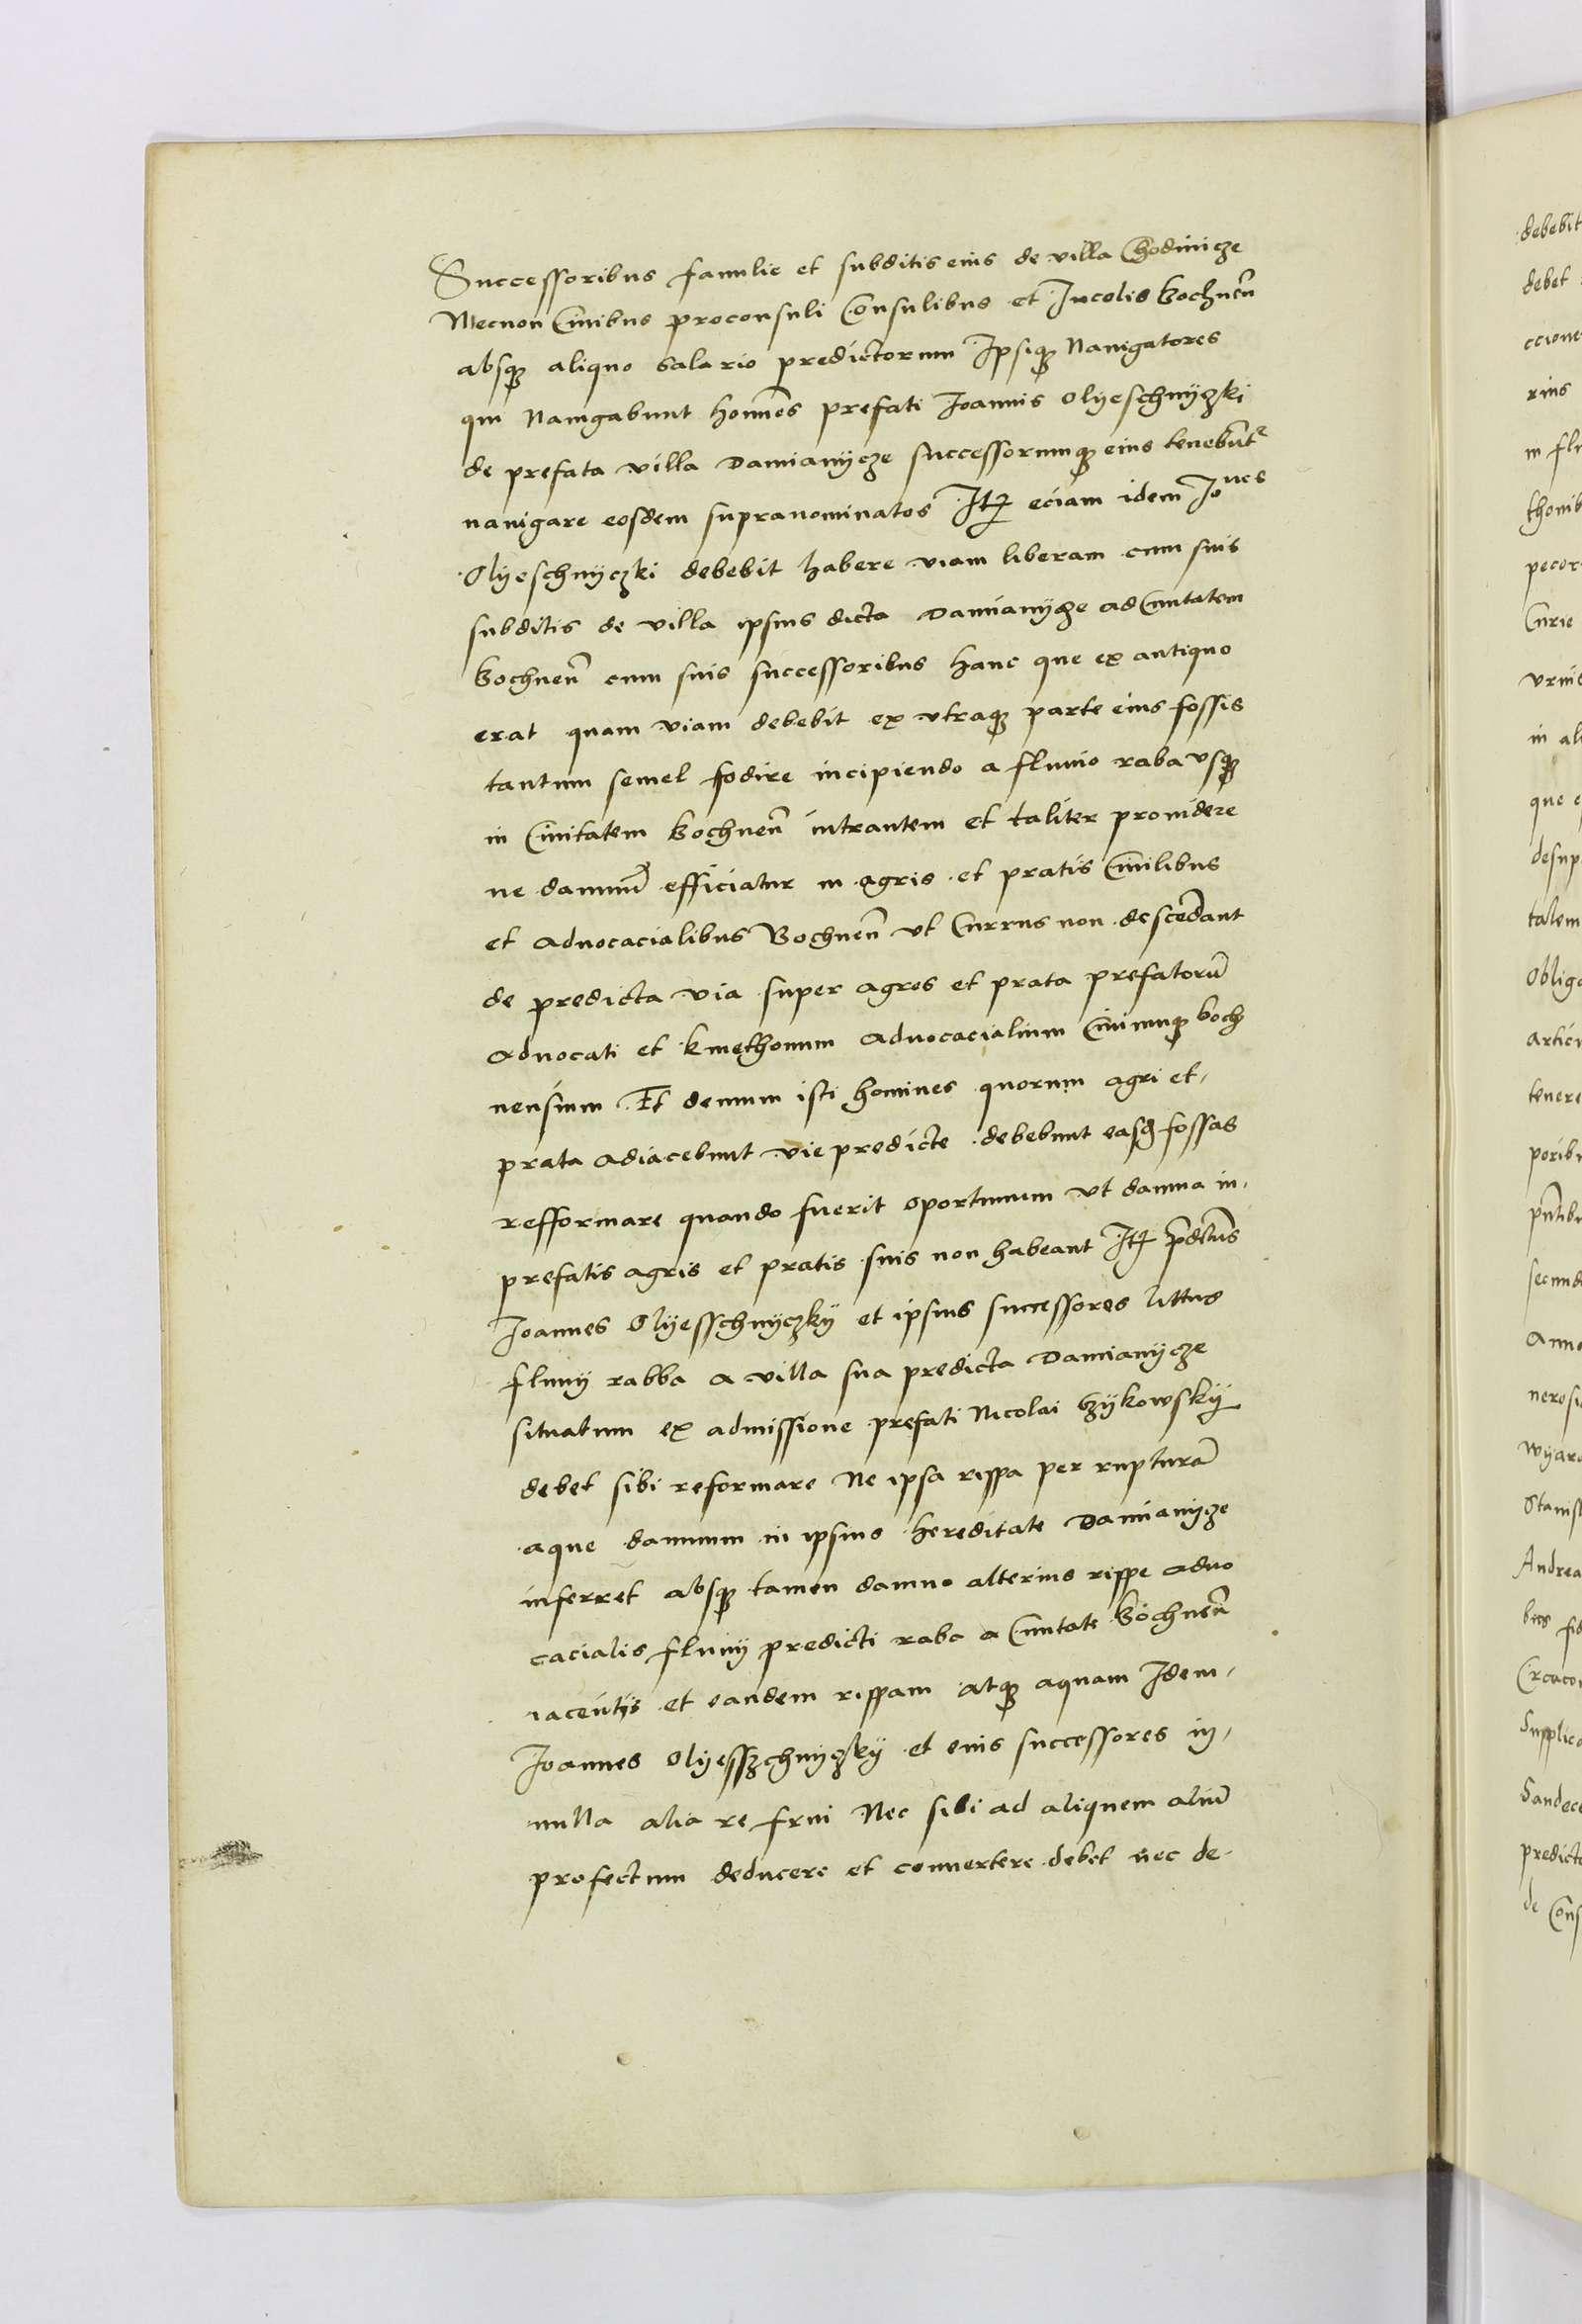 Successoribus famulie et subditis eius de villa Chodinicze
Necnon Ciuibus proconsuli Consulibus et Incolis bochneñ
absqꝫ aliquo salario predictorum Ipsiqꝫ Nauigatores
qui Nauigabunt homines prefati Joannis Olyeschnyczki
de prefata villa Damianycze successorumqꝫ eius tenebũtᵉ
nauigare eosdem supranominatos Itꝫ eciam idem Joⁿᵉˢ
Olyeschnyczki debebit habere viam liberam cum suis
subditis de villa ipsius dicta Damianycze ad Ciuitatem
bochneñ cum suis successoribus hanc que ex antiquo
erat quam viam debebit ex vtraqꝫ parte eius fossis
tantum semel fodire incipiendo a fluuio raba vsqꝫ
in Ciuitatem bochneñ intrantem et taliter prouidere
ne damnũ efficiatur in agris et pratis Ciuilibus
et aduocacialibus Bochneñ vt Currus non descẽdant
de predicta via super agros et prata prefatorũ
aduocati et kmethonum aduocacialium Ciuiumqꝫ boch
nensium Et demum isti homines quorum agri et
prata adiacebunt vie predicte debebunt easdꝫ fossas
refformare quando fuerit oportunum vt damna in
prefatis agris et pratis suis non habeant Itꝫ p̃dctus
Joannes Olyesschnyczky et ipsius successores littus
fluuij rabba a villa sua predicta Damianycze
situatum ex admissione prefati Nicolai bzykowsky
debet sibi reformare Ne ipsa rippa per rupturã
aque damnum in ipsius hereditate Damianycze
inferret absqꝫ tamen damno alterius rippe aduo
cacialis fluuij predicti raba a Ciuitate bochneñ
iacentis et eandem rippam atqꝫ aquam Idem
Joannes Olyesszchnyczky et eius successores in
nulla alia re frui Nec sibi ad aliquem aliũ
profectum deducere et conuertere debet nec de
debebit
debet
rius
in flu
pecor
Curie
in al
que
desup
talem
Obliga
tenere
secund
Anno
Stanis
Andrea
Supplica
predict